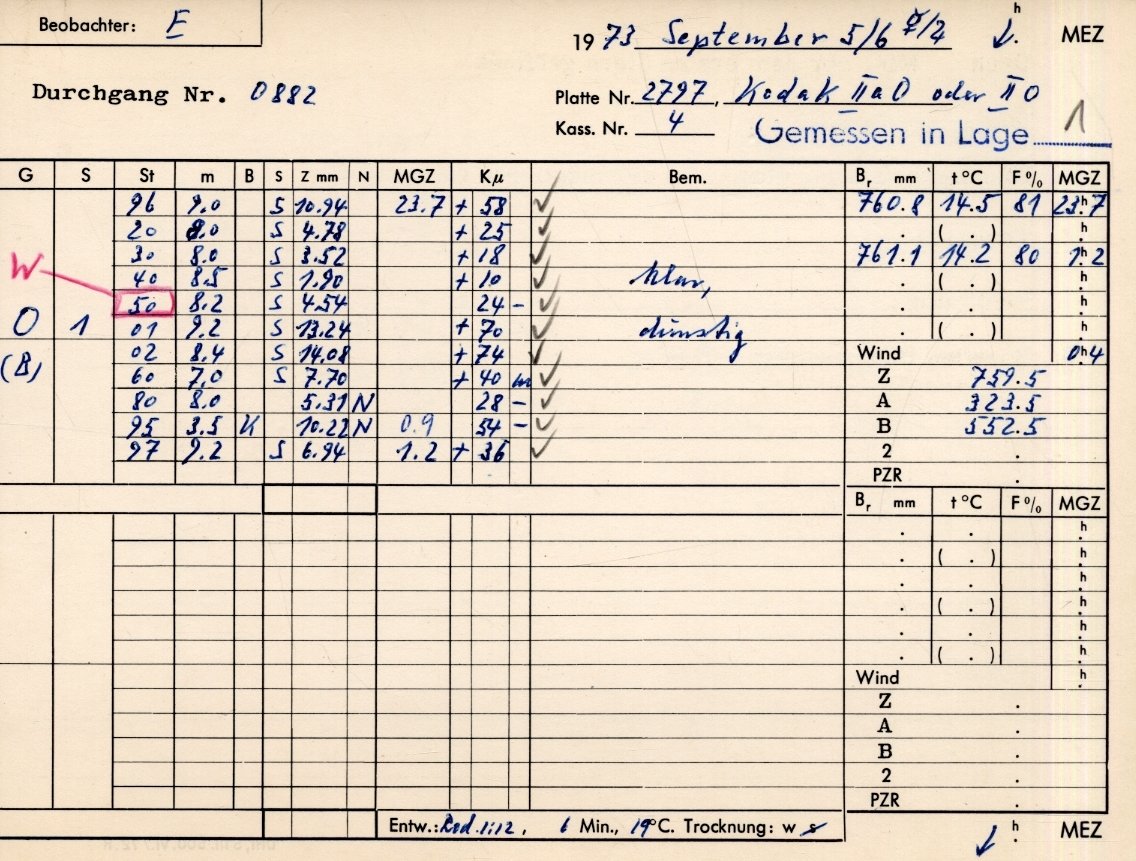 Beobachter: E
1973 September 5/6 ☿/♃ h MEZ
Durchgang Nr. 0882
Platte Nr. 2797, Kodak IIaO oder IIO
Kass. Nr. 4
Gemessen in Lage 1
G S St m B S Z mm N MGZ Kμ Bem. Br mm t °C F % MGZ
96 9.0 S 10.94 23.7 + 58 ✓ 760.8 14.5 81 23h7
20 8.0 S 4.78 + 25 ✓ . ( . ) h
30 8.0 S 3.52 + 18 ✓ 761.1 14.2 80 1h2
W 40 8.5 S 1.90 + 10 ✓ klar, . ( . ) h
50 8.2 S 4.54 24 - ✓ . . h
0 1 01 9.2 S 13.24 + 70 ✓ dunstig . ( . ) h
02 8.4 S 14.08 + 74 ✓ Wind 0h4
(B) 60 7.0 S 7.70 + 40 m ✓ Z 759.5
80 8.0 5.31 N 28 - ✓ A 323.5
95 3.5 K 10.22 N 0.9 54 - ✓ B 552.5
97 9.2 S 6.94 1.2 + 36 ✓ 2 .
PZR .
Br mm t °C F % MGZ
. . h
. ( . ) h
. . h
. ( . ) h
. . h
. ( . ) h
Wind h
Z .
A .
B .
2 .
PZR .
Entw.: Rod. 1:12, 6 Min., 19°C. Trocknung: w s
h MEZ